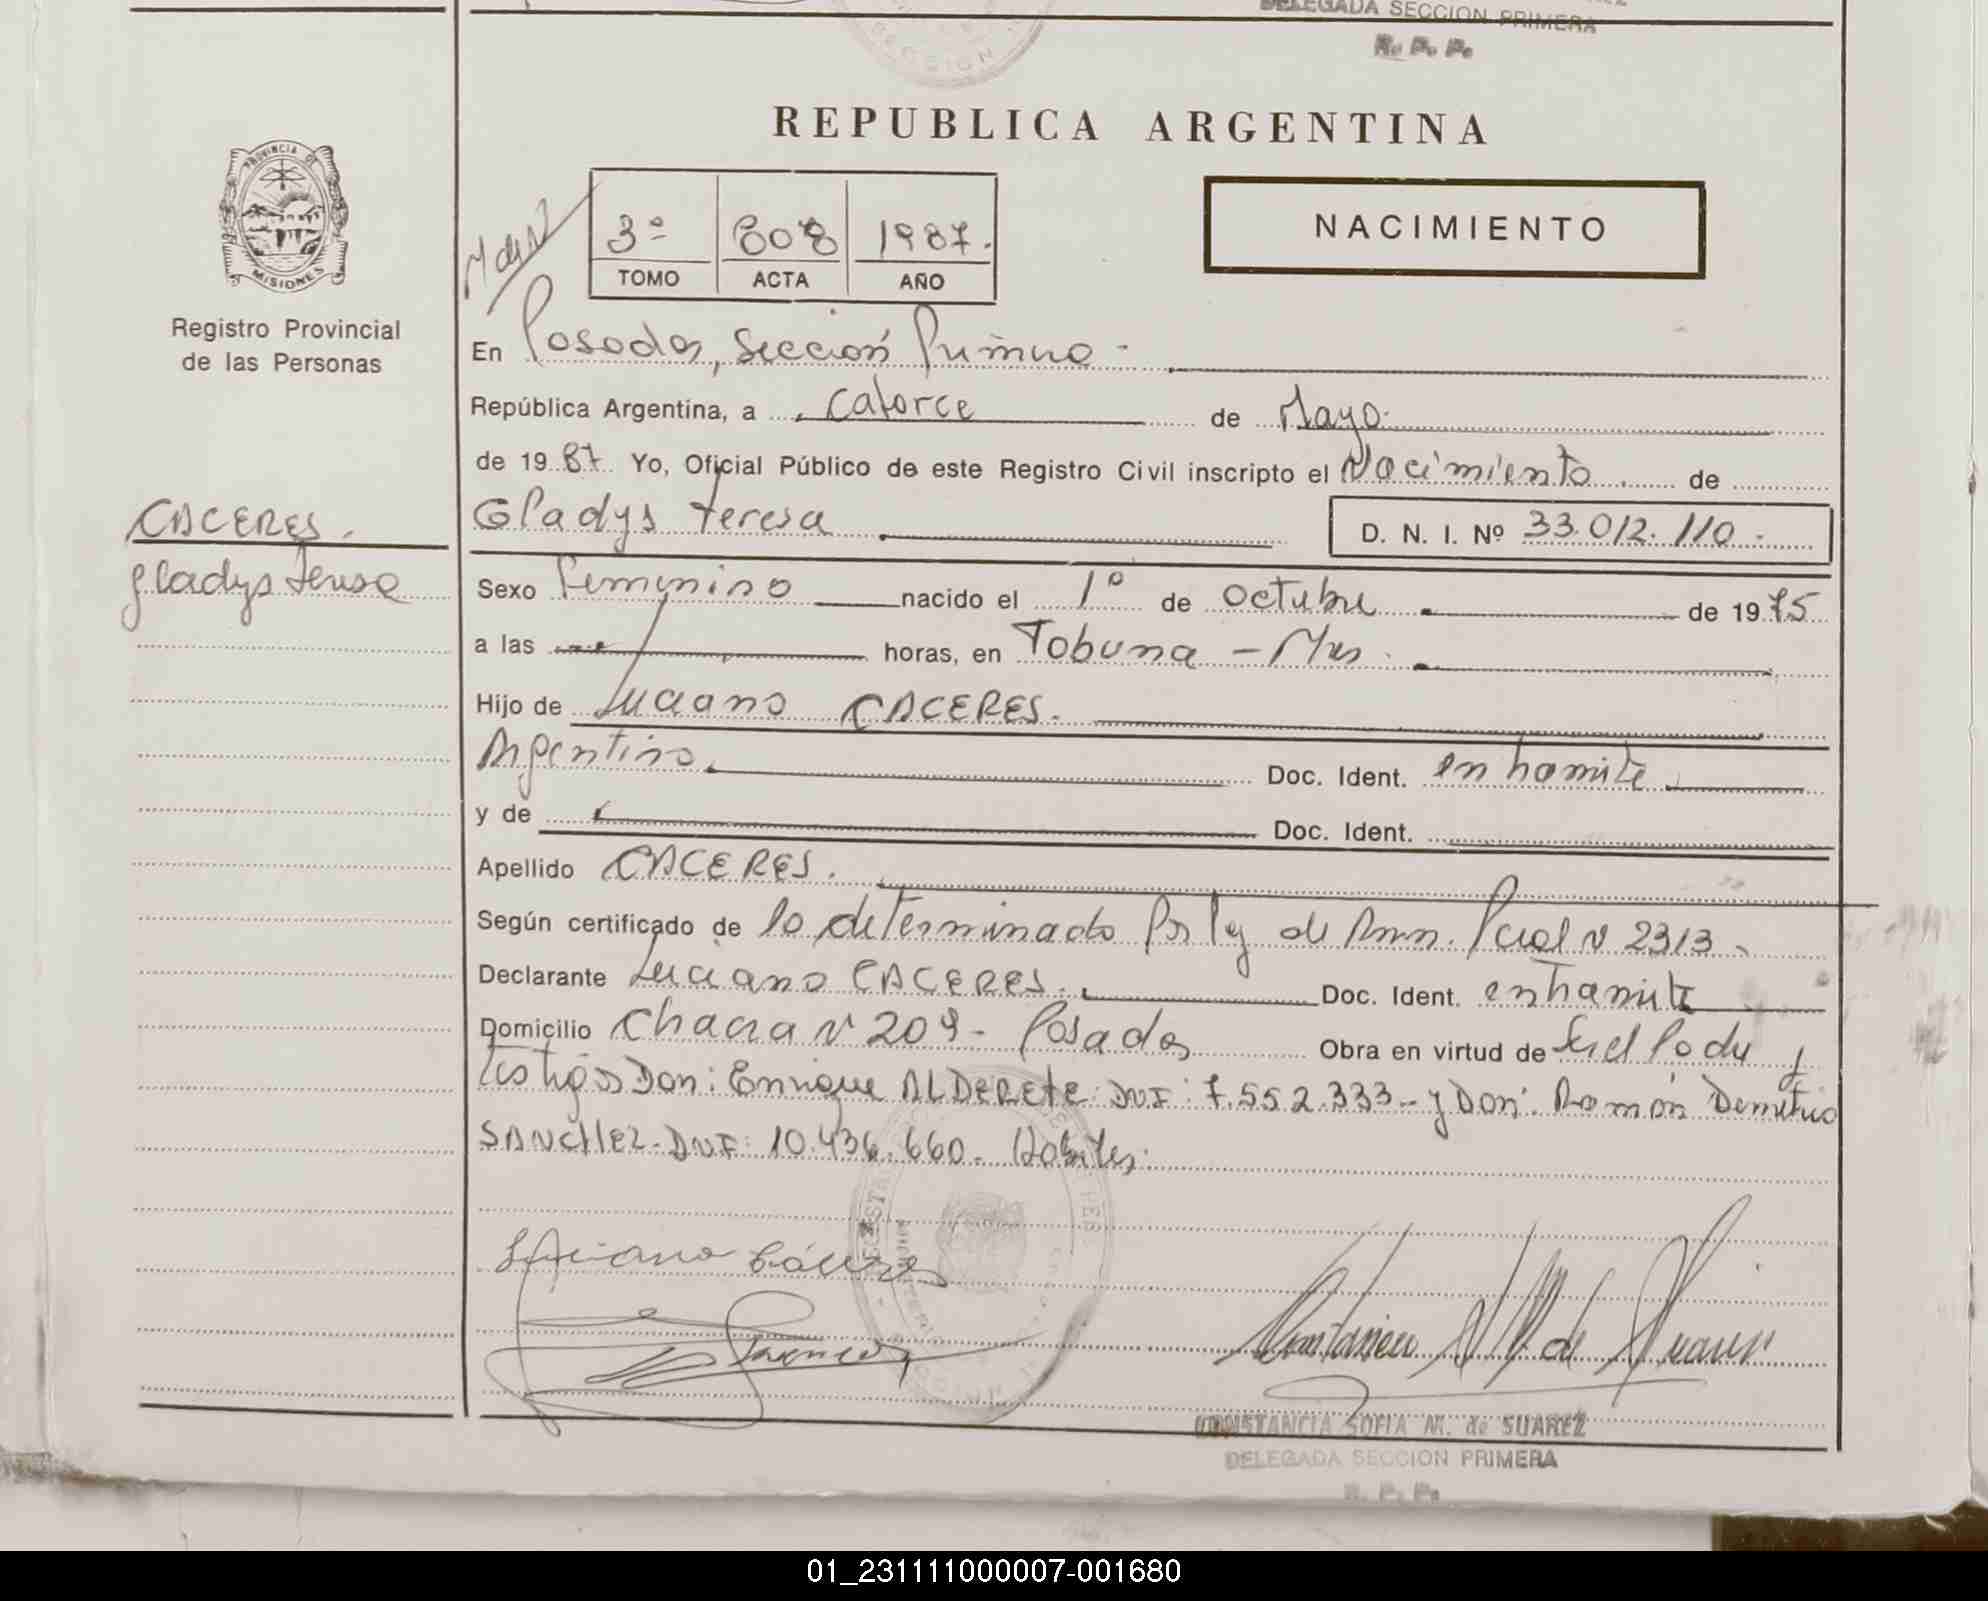 DELEGADA SECCION PRIMERA
R. P. P.
SECCION
REPUBLICA ARGENTINA
PROVINCIA DE
MISIONES
NACIMIENTO
3º 608 1987.
TOMO ACTA AÑO
Registro Provincial
de las Personas
En Posadas, Sección Primera -
República Argentina, a Catorce de Mayo.
de 1987. Yo, Oficial Público de este Registro Civil inscripto el Nacimiento de
CACERES.
Gladys Teresa
Gladys Teresa D. N. I. Nº 33.012.110.-
Sexo Femenino nacido el 1º de Octubre de 1975
a las horas, en Tobuna - Mnes.
Hijo de Luciano CACERES.
Argentino. Doc. Ident. en tramite
y de Doc. Ident.
Apellido CACERES.
Según certificado de lo determinado Por ley de Amn. Pcial Nº 2313.
Declarante Luciano CACERES. Doc. Ident. en tramite
Domicilio Chacra Nº 209 - Posadas Obra en virtud de
testigos Don: Enrique ALDERETE DNI: 7.552.333.- y Don: Ramón Demetrio
SANCHEZ.- DNI: 10.436.660.- Habiles.
Luciano Cáceres
CONSTANCIA SOFIA M. de SUAREZ
DELEGADA SECCION PRIMERA
R. P. P.
01_231111000007-001680